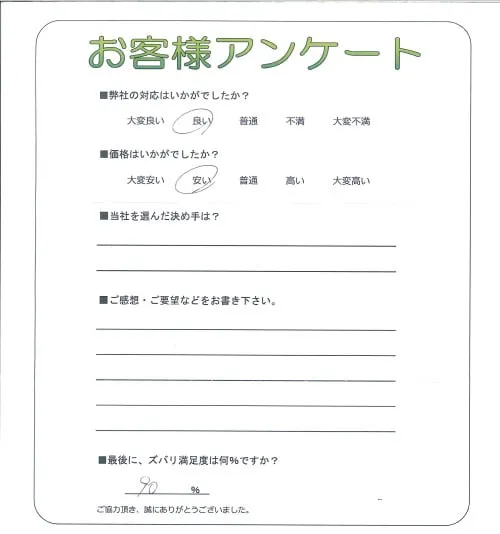 お客様アンケート
■弊社の対応はいかがでしたか？
大変良い 良い 普通 不満 大変不満
■価格はいかがでしたか？
大変安い 安い 普通 高い 大変高い
■当社を選んだ決め手は？
■ご感想・ご要望などをお書き下さい。
■最後に、ズバリ満足度は何%ですか？
90 %
ご協力頂き、誠にありがとうございました。